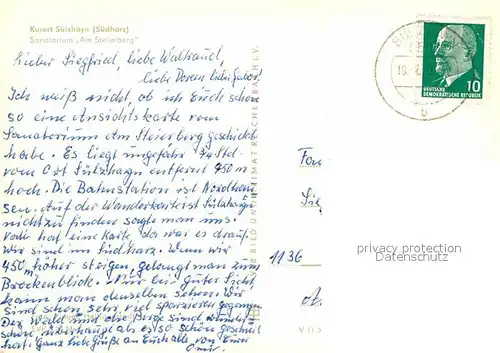 Kurort Sülzhayn (Südharz)
Sanatorium „Am Steierberg"
Lieber Siegfried, liebe Waltraud,
liebe Doreen lieber
Ich weiß nicht, ob ich Euch schon
so eine Ansichtskarte vom
Sanatorium Am Steierberg geschickt
habe. Es liegt ungefähr 3/4 Std.
vom Ort Sülzhayn entfernt 450 m
hoch. Die Bahnstation ist Nordhau-
sen. Auf der Wanderkarte ist Sülzhayn
nicht zu finden sagte man uns.
hat eine Karte da war es drauf.
Wir sind im Südharz. Wenn wir
450 m höher steigen, gelangt man zum
Brockenblick. Nur bei guter Sicht
kann man denselben sehen. Wir
sind schon sehr viel spazieren gegangen
Der Wald und die Berge sind
schön überhaupt als es so schön geschneit
hat. Ganz lieb grüßt Euch alle von Eurer
Omi.
DEUTSCHE
DEMOKRATISCHE REPUBLIK
10
Fam
1136
privacy protection
Datenschutz